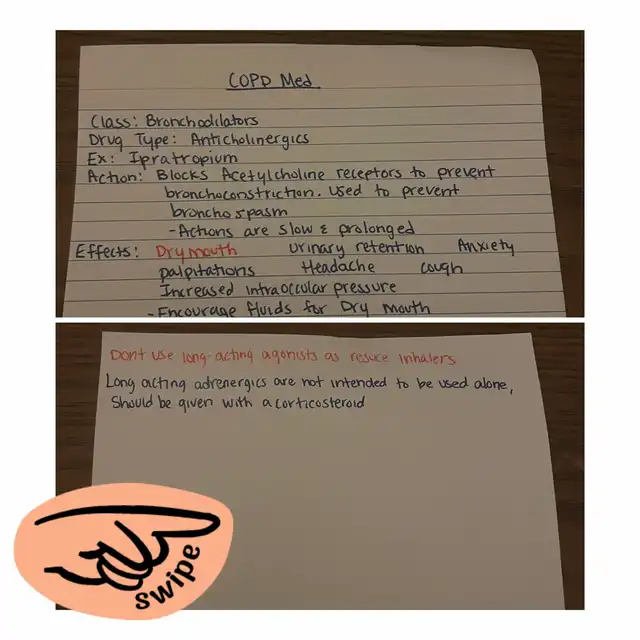 COPD Med
Class: Bronchodilators
Drug Type: Anticholinergics
Ex: Ipratropium
Action: Blocks Acetylcholine receptors to prevent
bronchoconstriction. Used to prevent
bronchospasm
- Actions are slow & prolonged
Effects: Dry mouth urinary retention Anxiety
palpitations Headache cough
Increased intraoccular pressure
- Encourage fluids for Dry mouth
Dont use long-acting agonists as resuce inhalers
Long acting adrenergics are not intended to be used alone,
Should be given with a corticosteroid
swipe